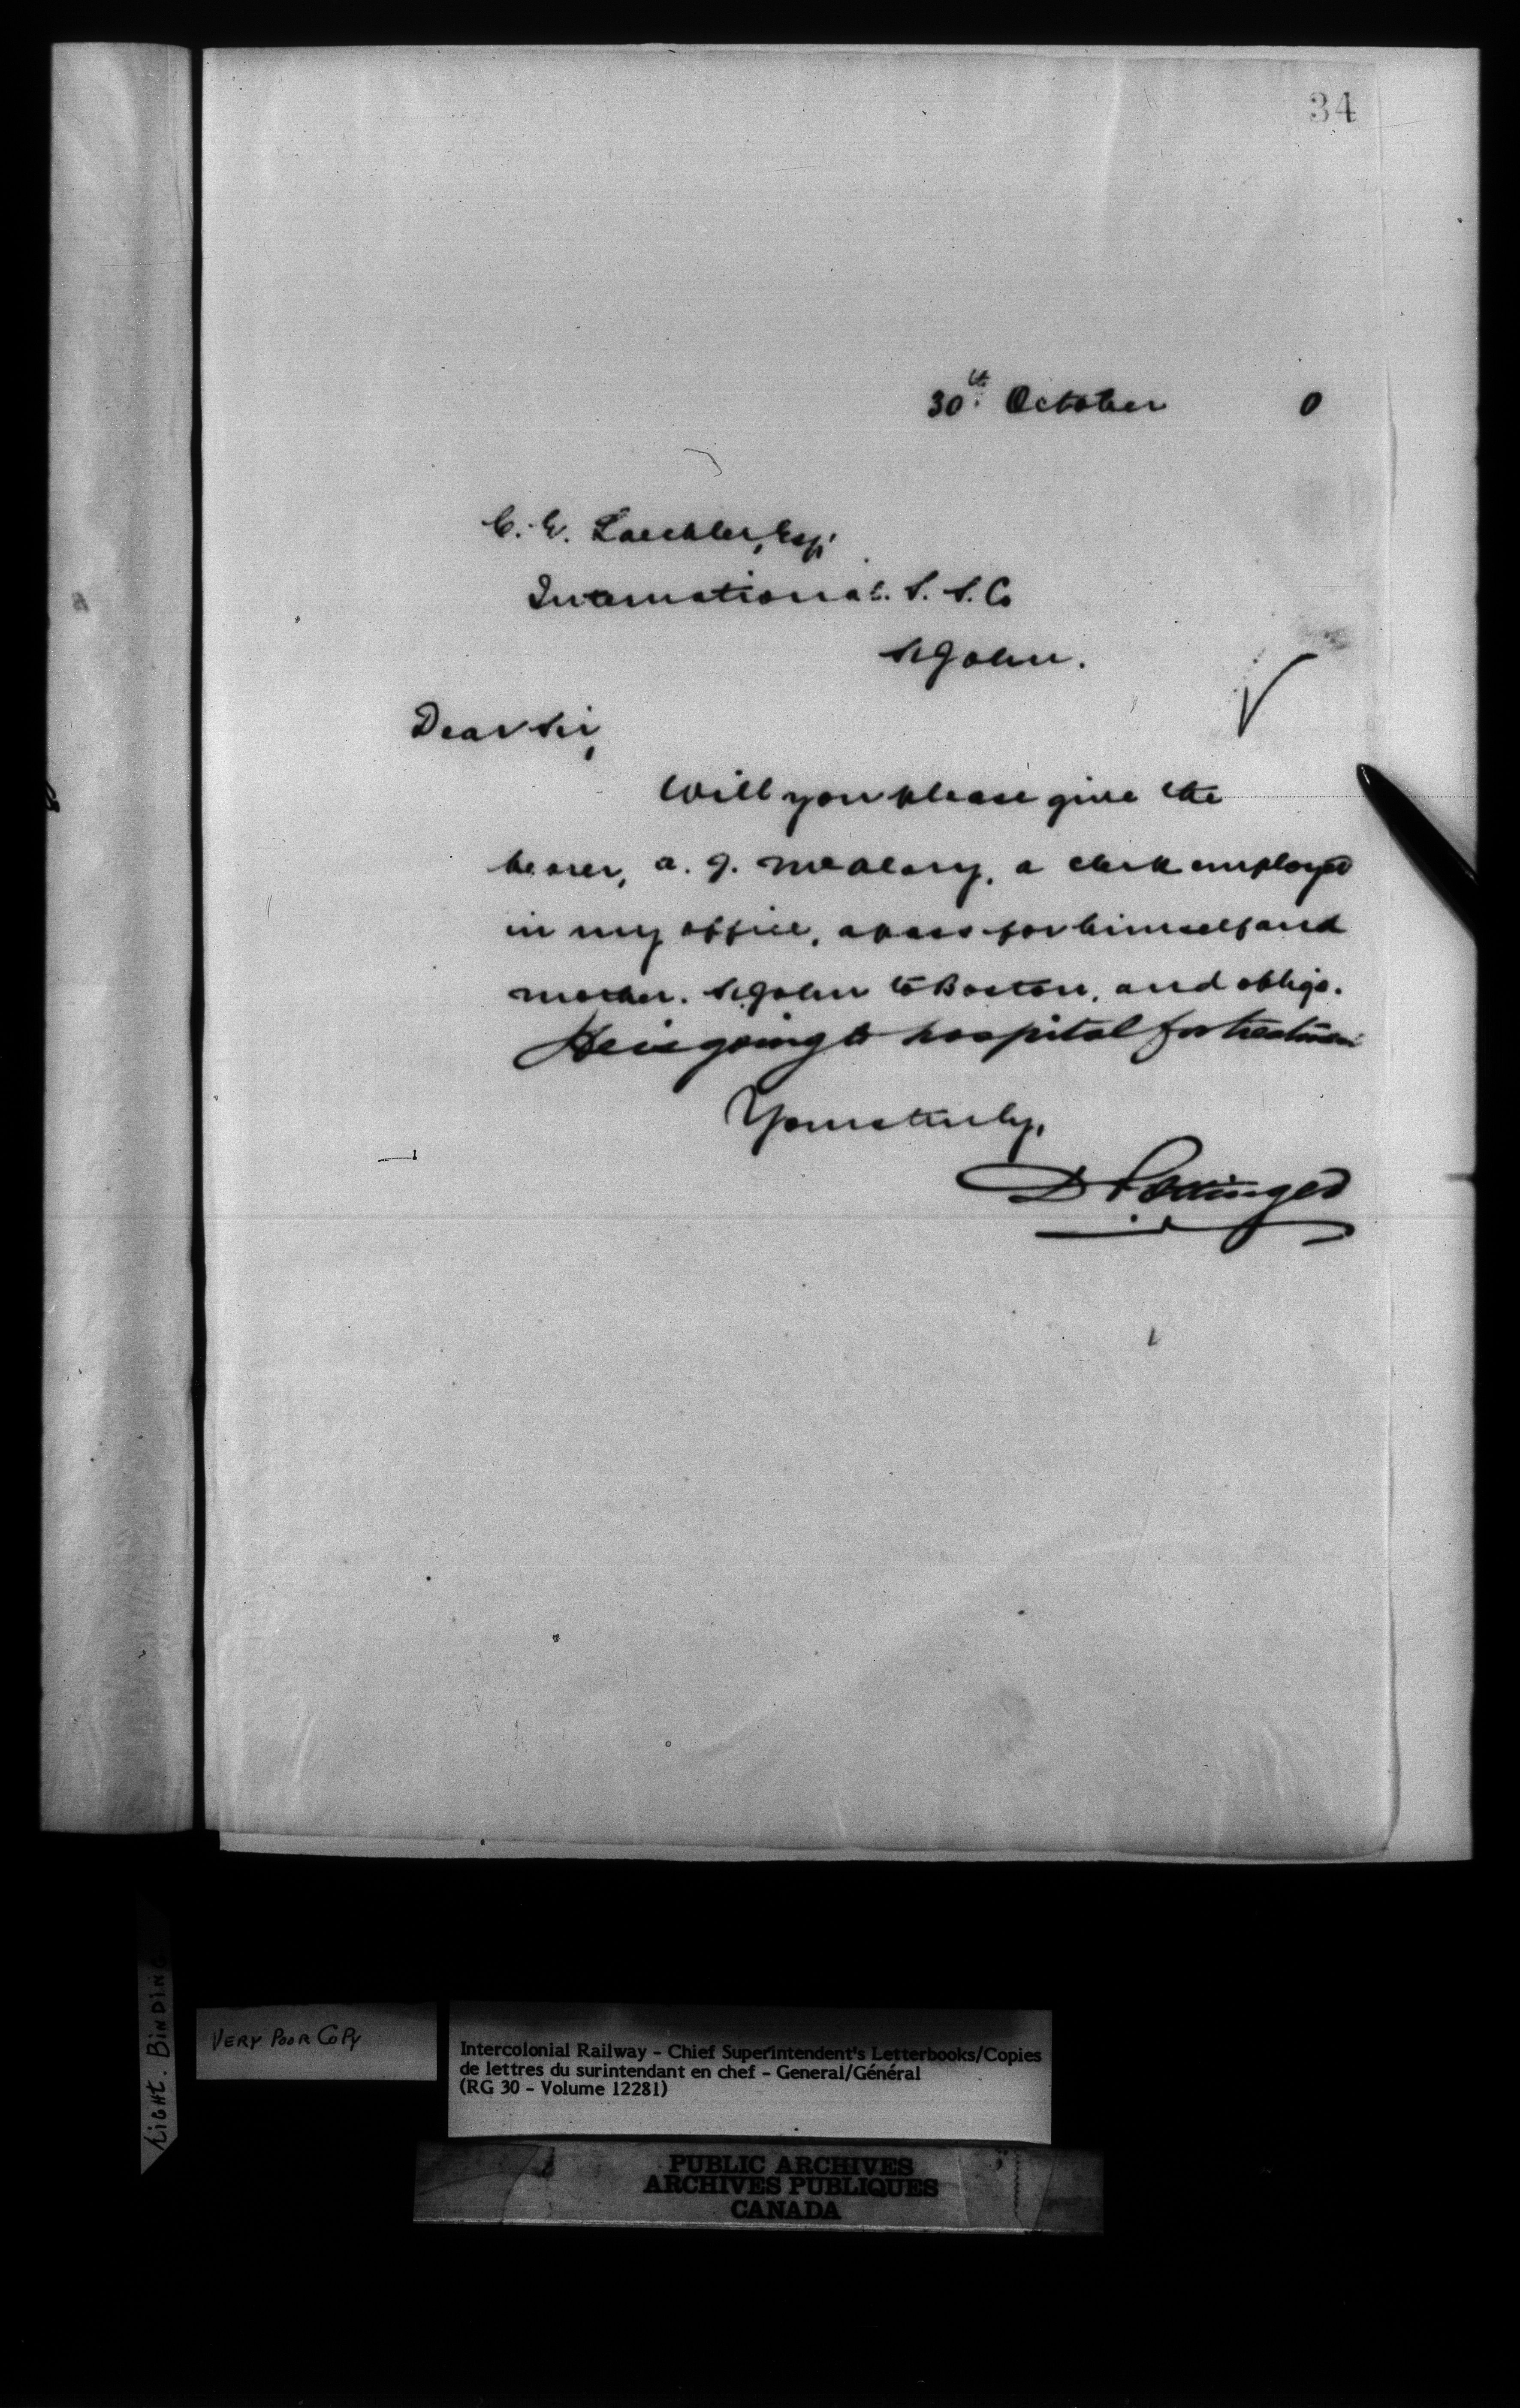 34
30th October 0
C. E. Laechler, Esq.
International S. S. Co
St John.
Dear Sir,
Will you please give the
bearer, A. J. McAleary, a clerk employed
in my office, a pass for himself and
mother. St John to Boston, and oblige.
He is going to hospital for treatment
Yours truly,
D Pottinger
LIGHT. BINDING
VERY POOR COPY
Intercolonial Railway - Chief Superintendent's Letterbooks/Copies
de lettres du surintendant en chef - General/Général
(RG 30 - Volume 12281)
PUBLIC ARCHIVES
ARCHIVES PUBLIQUES
CANADA